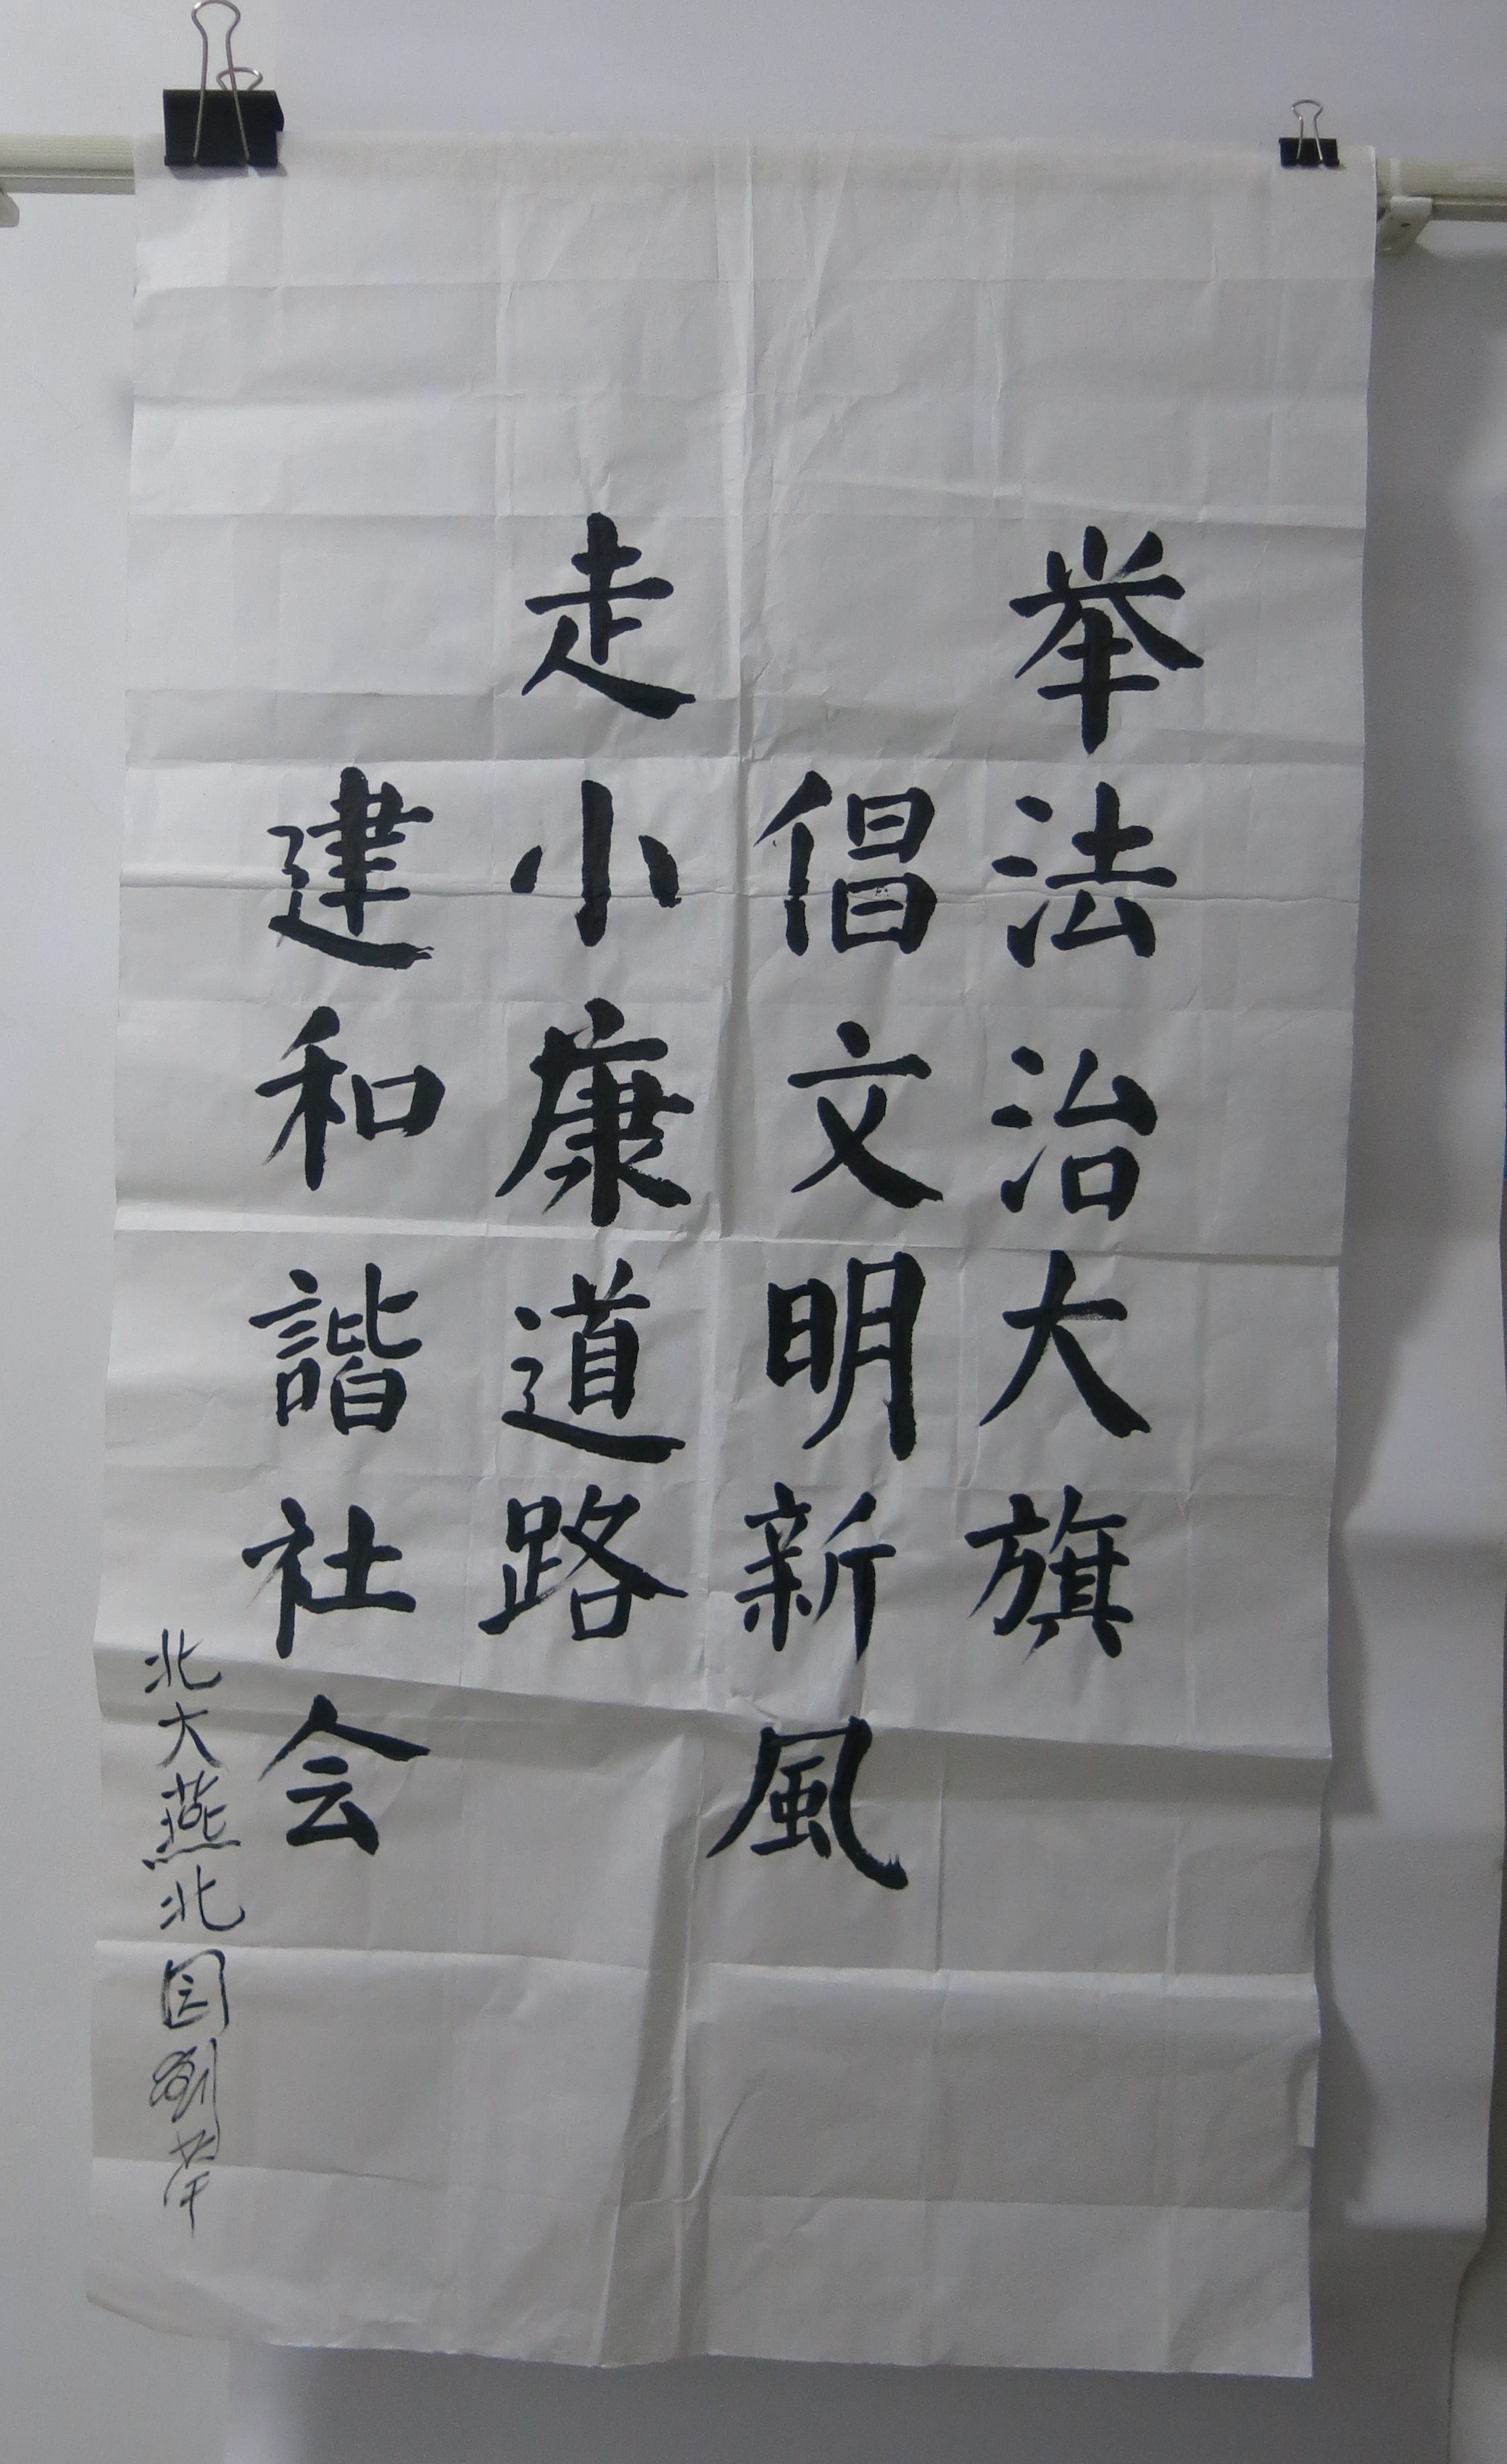 举法治大旗
倡文明新風
走小康道路
建和諧社会
北大燕北园劉苹